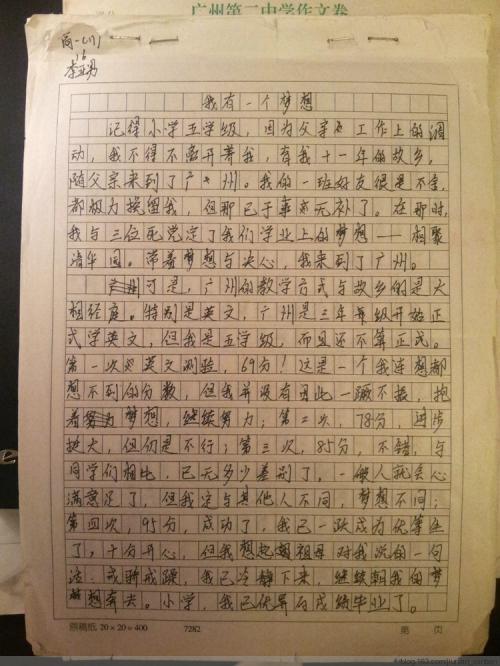 广州第二中学作文卷
高一(11)
16
李亚男
我有一个梦想
记得小学五学级，因为父亲工作上的调
动，我不得不离开养我，育我十一年的故乡，
随父亲来到了广州。我的一班好友很是不舍，
都极力挽留我，但那已于事亦无补了。在那时，
我与三位死党定了我们学业上的梦想——相聚
清华园。带着梦想与决心，我来到了广州。
可是，广州的教学方式与故乡的是大
相经庭。特别是英文，广州是三年级开始正
式学英文，但我是五学级，而且还不算正式。
第一次英文测验，69分！这是一个我连想都
想不到的分数，但我并没有因此一蹶不振，抱
着梦想，继续努力；第二次，78分，进步
挺大，但仍是不行；第三次，85分，不错，与
同学们相比，已无多少差别了，一般人就会心
满意足了，但我定与其他人不同，梦想不同；
第四次，95分，成功了，我已一跃成为优等生
了，十分开心，但我想起祖母对我说的一句
话：戒骄戒躁，我已冷静下来，继续朝我的梦
想奔去。小学，我已优异的成绩毕业了。
原稿纸 20×20=400 7282 第 页